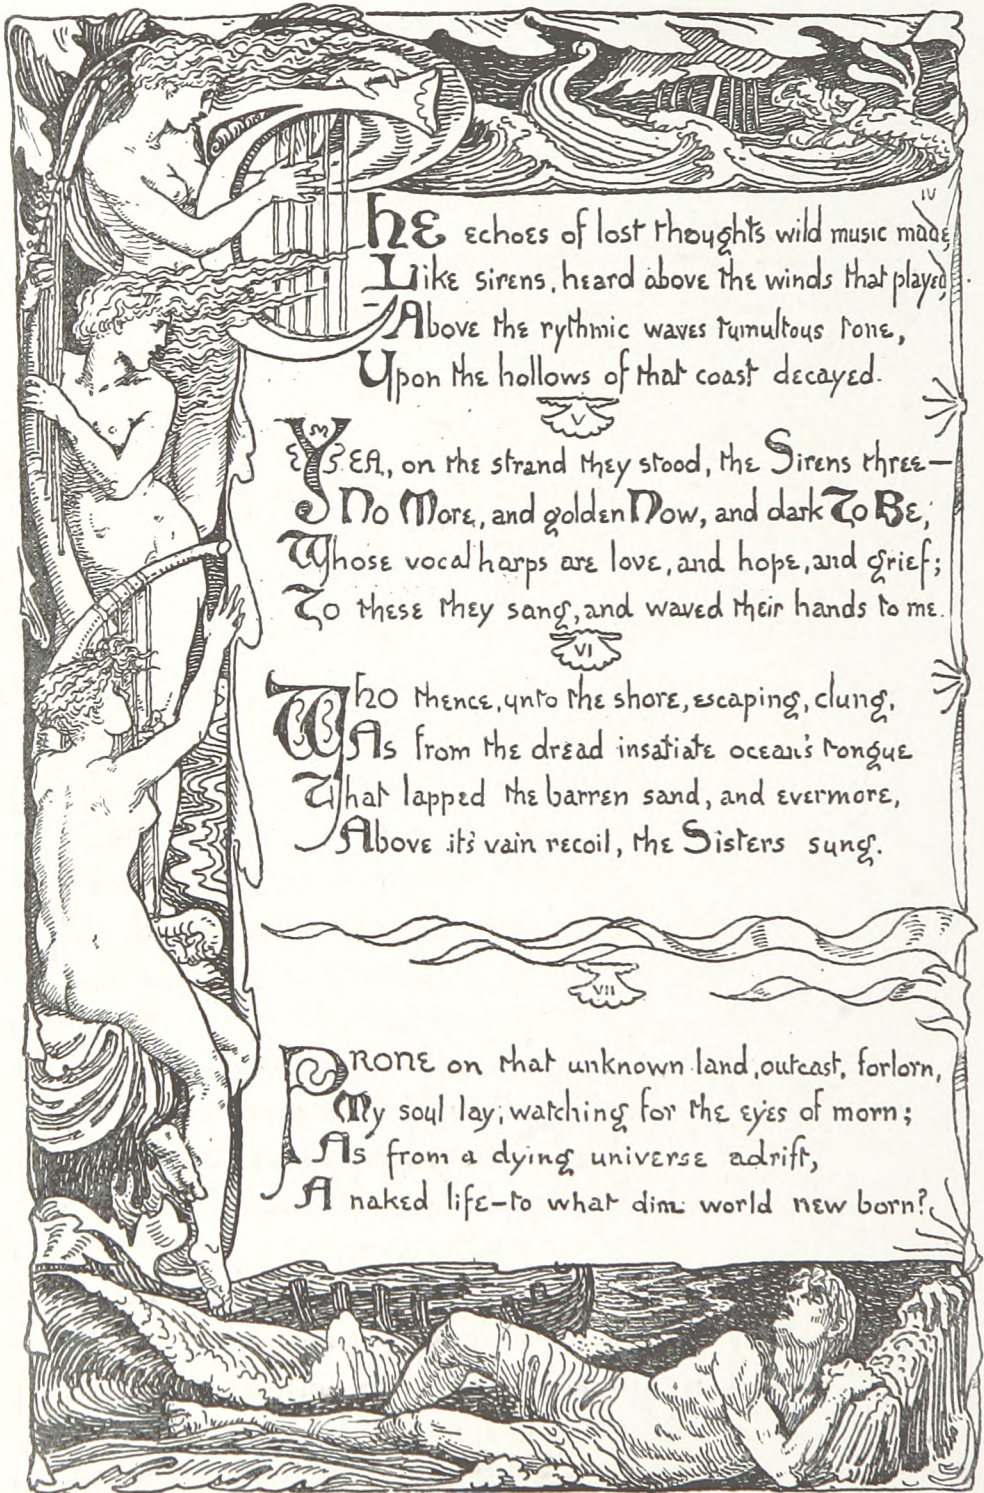 IV
The echoes of lost thoughts wild music made,
Like sirens, heard above the winds that played,
Above the rythmic waves tumultous tone,
Upon the hollows of that coast decayed.
V
Yea, on the strand they stood, the Sirens three—
No More, and golden Now, and dark To Be,
Whose vocal harps are love, and hope, and grief;
To these they sang, and waved their hands to me.
VI
Who thence, unto the shore, escaping, clung,
As from the dread insatiate ocean's tongue
That lapped the barren sand, and evermore,
Above it's vain recoil, the Sisters sung.
VII
Prone on that unknown land, outcast, forlorn,
My soul lay, watching for the eyes of morn;
As from a dying universe adrift,
A naked life—to what dim world new born?